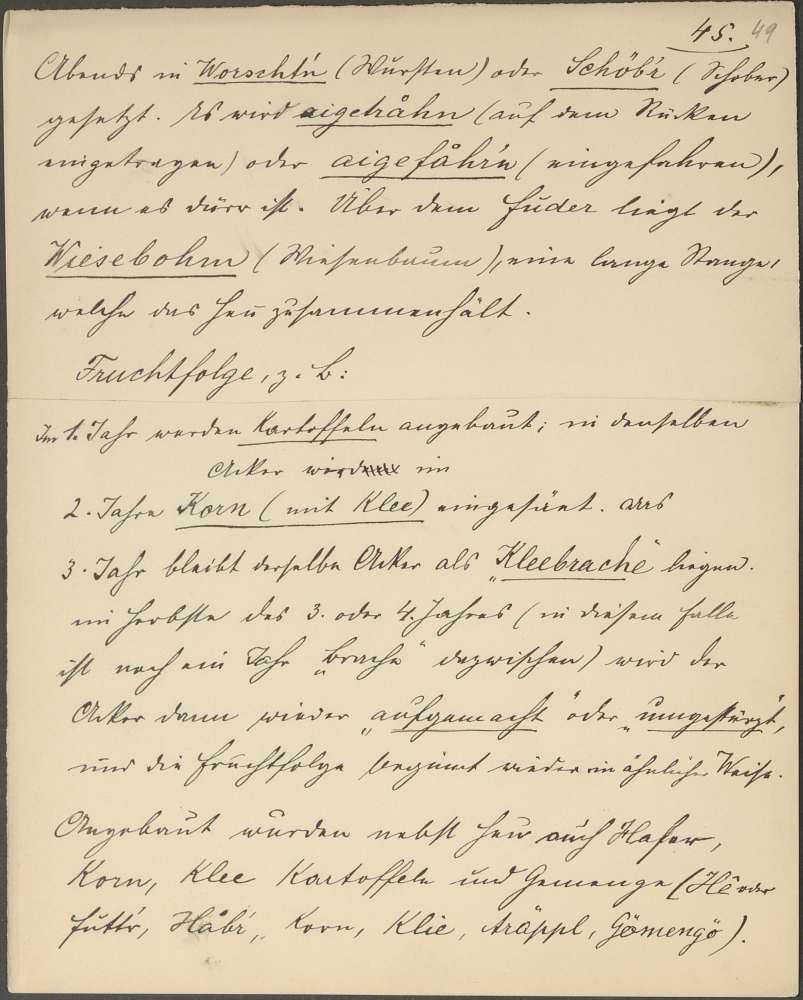 45. 49
Abends in Worscht'n (Wursten) oder Schöb'r (Schober)
gesetzt. Es wird aigetråhn (auf dem Rücken
eingetragen) oder aigefåhr'n (eingefahren),
wenn es dürr ist. Über dem Fuder liegt der
Wiesebohm (Wiesenbaum), eine lange Stange,
welche das Heu zusammenhält.
Fruchtfolge, z. B:
Im 1. Jahr werden Kartoffeln angebaut; in denselben
Acker wird im
2. Jahre Korn (mit Klee) eingesäet. Das
3. Jahr bleibt derselbe Acker als „Kleebrache" liegen.
im Herbste des 3. oder 4. Jahres (in diesem Falle
ist noch ein Jahr „Brache" dazwischen) wird der
Acker dann wieder „aufgemacht" oder „umgestürzt",
und die Fruchtfolge beginnt wieder in ähnlicher Weise.
Angebaut wurden nebst Heu auch Hafer,
Korn, Klee Kartoffeln und Gemenge (Hê oder
Futt'r, Håb'r, Korn, Klie, Aräppl, Gömengö).